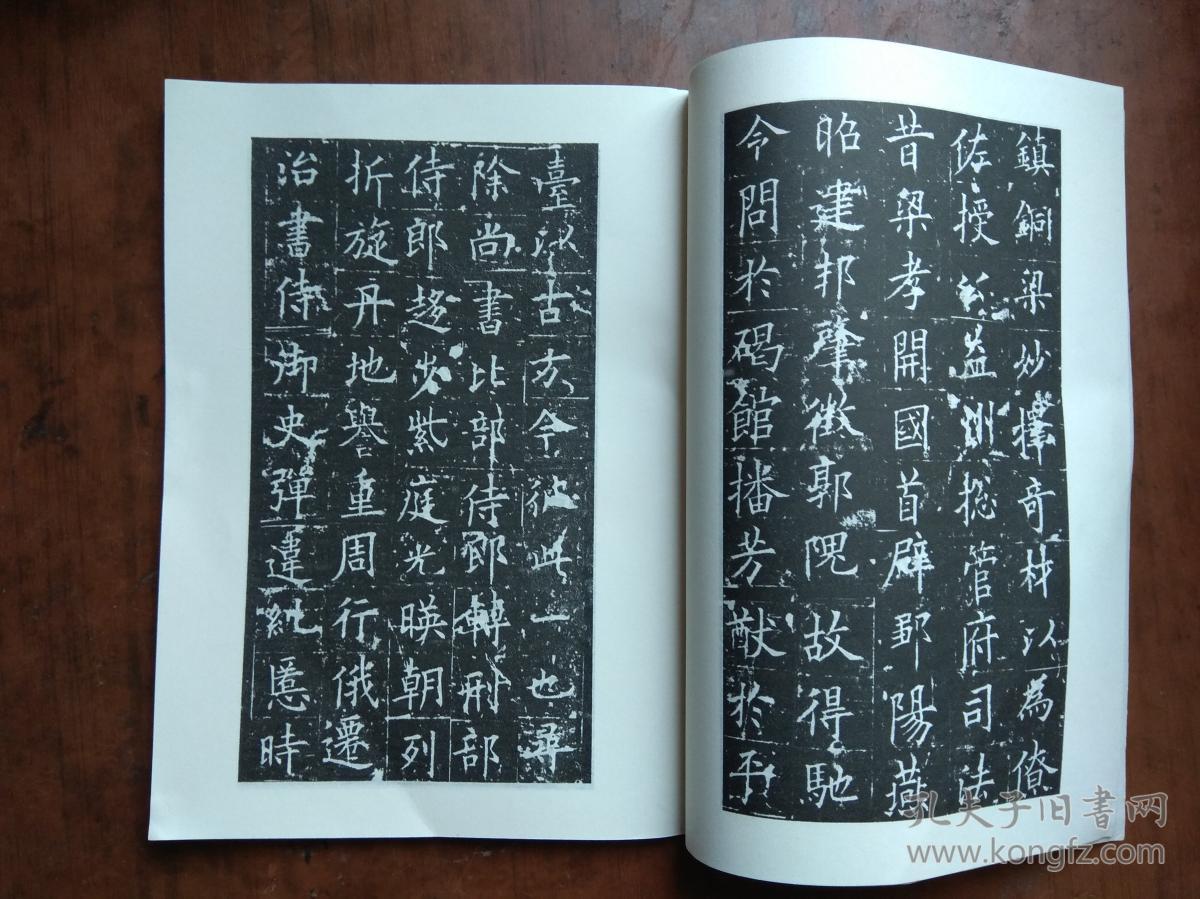 鎮銅梁妙擇奇材以為僚
佐授公益州揔管府司法
昔梁孝開國首辟鄒陽燕
昭建邦肇徵郭隗故得馳
令問於碣館播芳猷於平
臺以古方今彼此一也尋
除尚書比部侍郎轉刑部
侍郎趍步紫庭光暎朝列
折旋丹地譽重周行俄遷
治書侍御史彈違糺慝時
孔夫子旧書网
www.kongfz.com